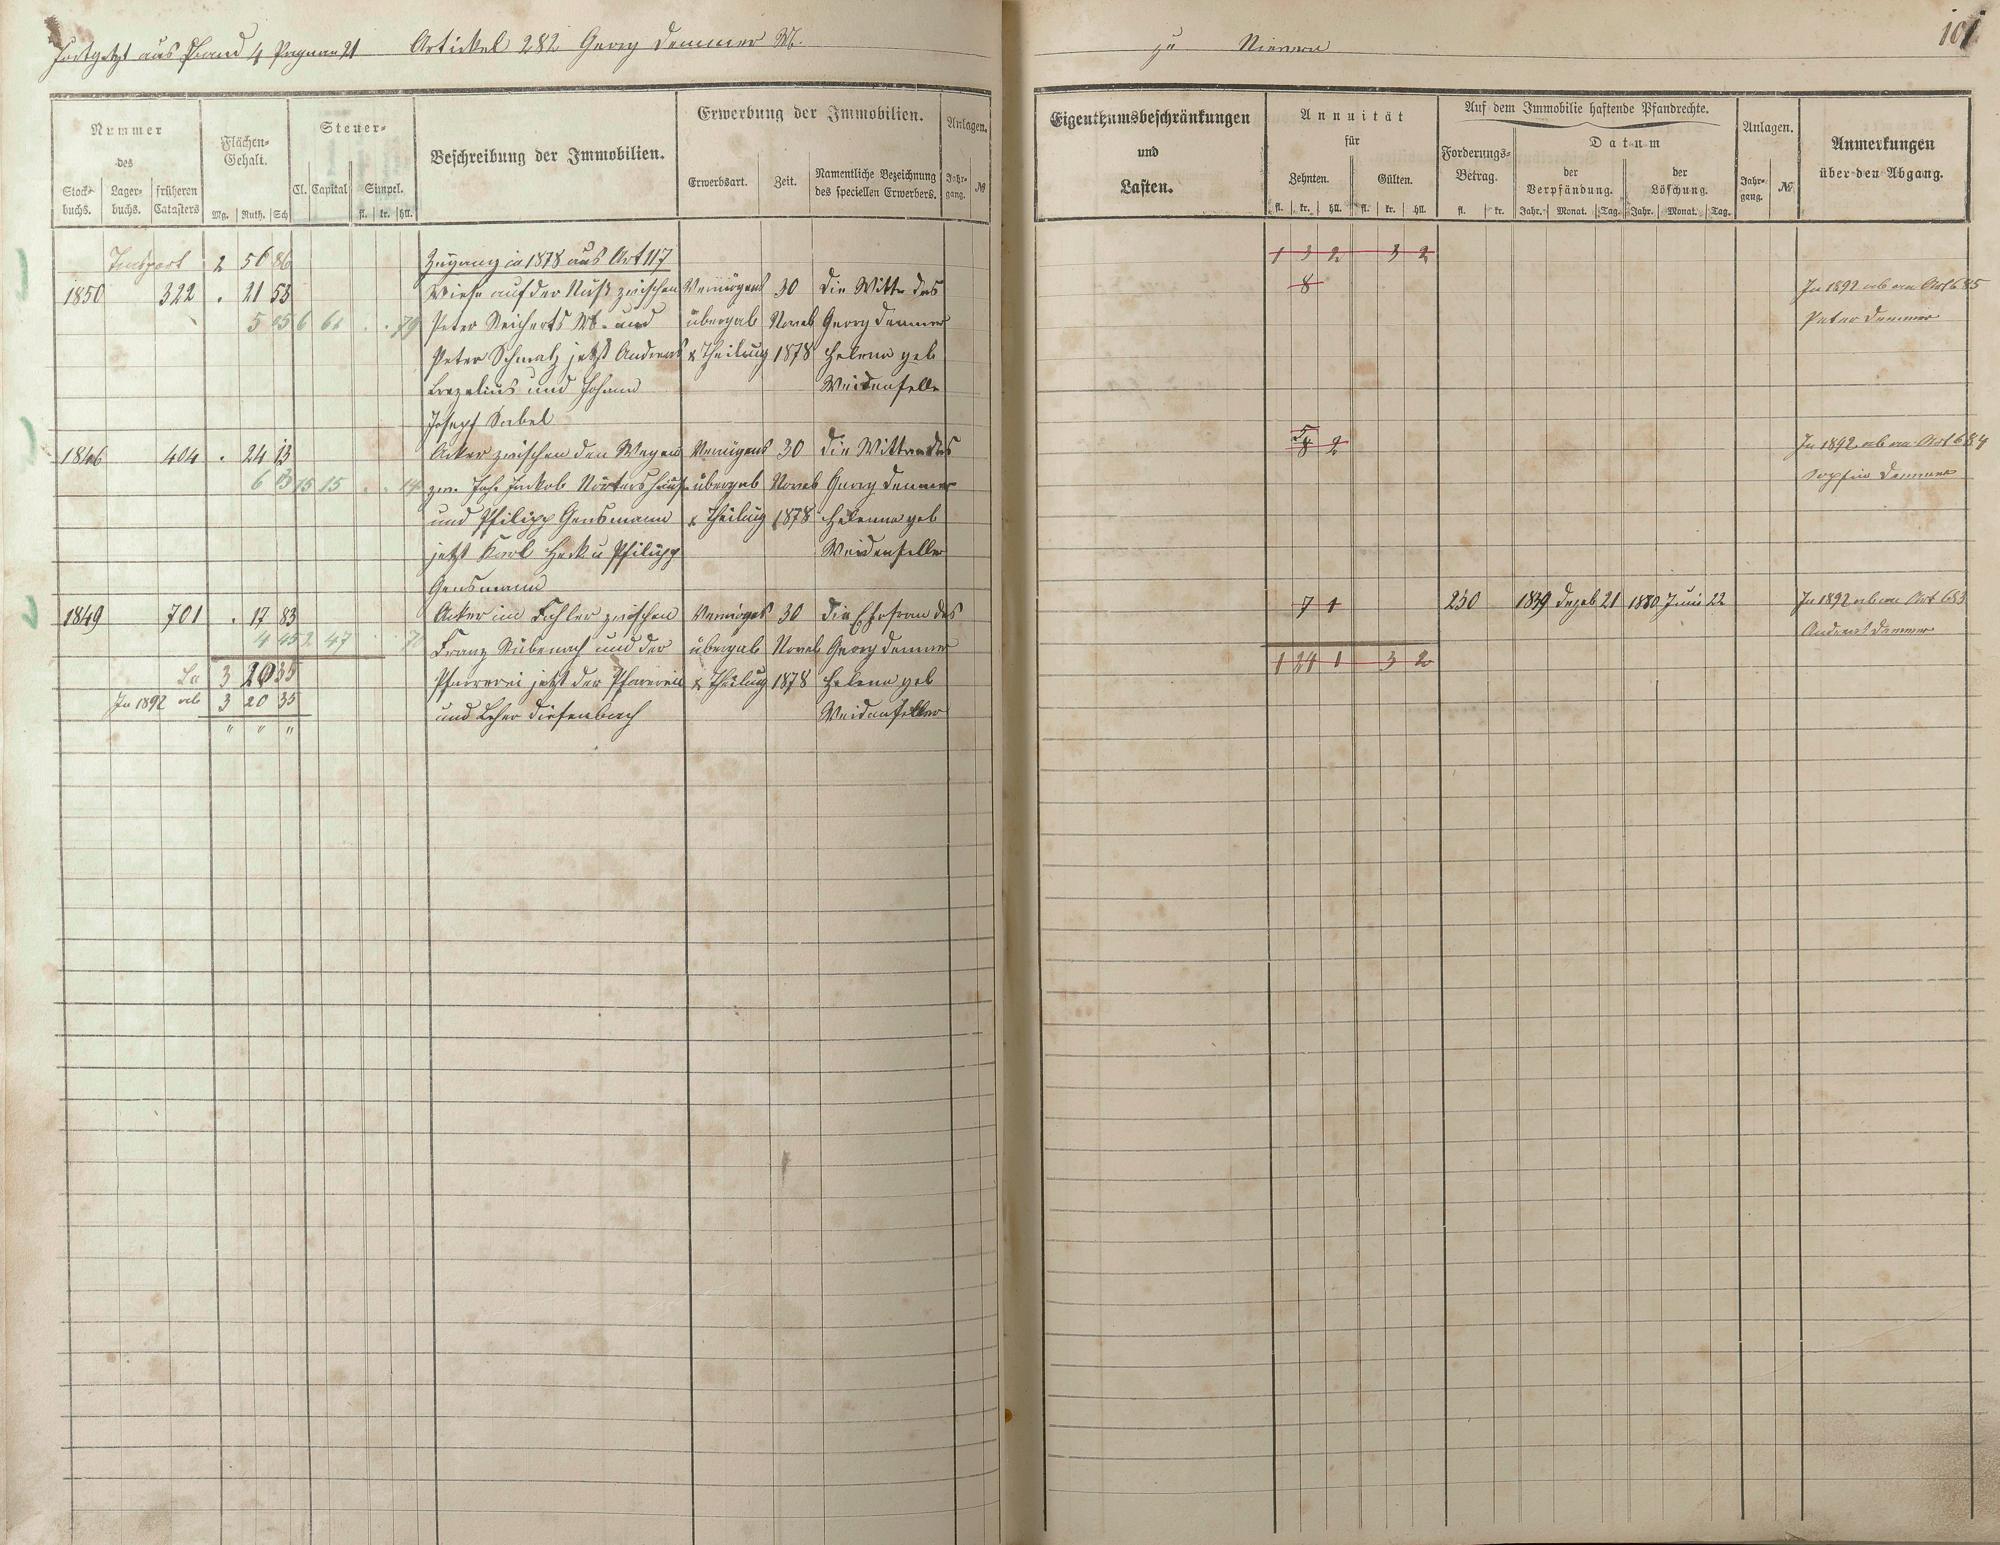 Fortgesetzt aus Band 4 Pagina 21 Artickel 282 Georg Demmer W.
zu Nievern
101
Nummer
des
Stock-
buchs.
Lager-
buchs.
früheren
Catasters
Flächen-
Gehalt.
Mg. Ruth. Sch
Steuer-
Cl. Capital Simpel.
fl. kr. hll.
Beschreibung der Immobilien.
Erwerbung der Immobilien.
Erwerbsart.
Zeit.
Namentliche Bezeichnung
des speciellen Erwerbers.
Anlagen.
Jahr-
gang.
№
Eigenthumsbeschränkungen
und
Lasten.
Annuität
für
Zehnten.
Gülten.
fl. kr. hll. fl. kr. hll.
Auf dem Immobilie haftende Pfandrechte.
Forderungs-
Betrag.
fl. kr.
Datum
der
Verpfändung.
der
Löschung.
Jahr. Monat. Tag. Jahr. Monat. Tag.
Anlagen.
Jahr-
gang.
№
Anmerkungen
über den Abgang.
Transport 2 56 86 Zugang in 1878 aus Art 117 1 3 2 3 2
1850 322 . 21 53 Wiese auf der Nuß zwischen Vermögens 30 die Wittw des 8 In 1892 ab an Art 685
5 6 61 . . 79 Peter Reicherts Wb. und übergab Noveb Georg Demmer Peter Demmer
Peter Schmalz jetzt Andreas & Theilung 1878 Helena geb
und Johann Weidenfeller
Josef Sabel
1846 404 . 24 13 Acker zwischen den Wegen Vermögens 30 die Wittwe des 5 8 2 In 1892 ab an Art 684
6 03 15 15 . . 14 zw. Joh. Jackob übergab Noveb Georg Demmer Sophie Demmer
und Philipp Gensmann & Theilung 1878 Helenna geb
jetzt Karl Heck u Philipp Weidenfeller
Gensmann
1849 701 . 17 83 Acker im Fohler zwischen Vermögens 30 die Ehefrau des 7 1 250 1839 Dezeb 21 1880 Juni 22 In 1892 ab an Art 683
4 45 2 47 Franz Rübenach und der übergab Noveb Georg Demmer Andreas Demmer
3 20 35 Pfarrerei jetzt der Pfarrerei & Theilung 1878 Helena geb 1 24 1 3 2
In 1892 ab 3 20 35 und Lehrer Diefenbach Weidenfeller
" " "